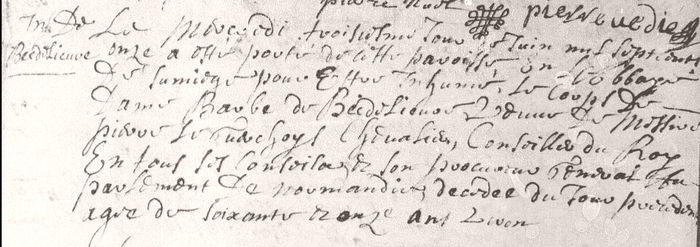 pierre vedie
In. De
Becdelieure
Le Mercredi troisiesme Jour de Juin mil sept cents
onze a esté porté de cette paroisse en l'abbaye
De Jumiege pour Estre Inhumé, le Corps De
Dame Barbe de Becdelieure veuve De Messire
pierre Le Guerchoys Chevalier, Conseiller du Roy
En tous ses Conseils & son procureur general au
parlement De normandie, decedée du Jour precedent
agée de soixante & onze ans